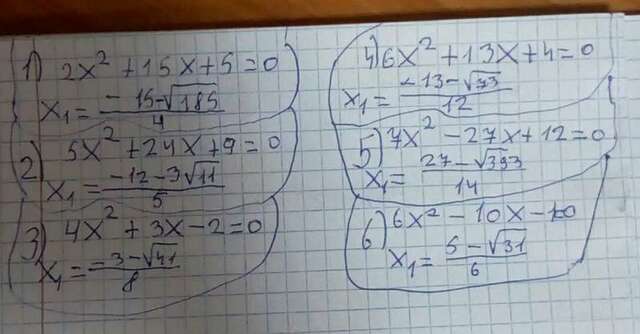 1) 2x² + 15x + 5 = 0
x₁ = (-15-√185)/4
2) 5x² + 24x + 9 = 0
x₁ = (-12-3√11)/5
3) 4x² + 3x - 2 = 0
x₁ = (-3-√41)/8
4) 6x² + 13x + 4 = 0
x₁ = (-13-√73)/12
5) 7x² - 27x + 12 = 0
x₁ = (27-√393)/14
6) 6x² - 10x -
x₁ = (5-√31)/6